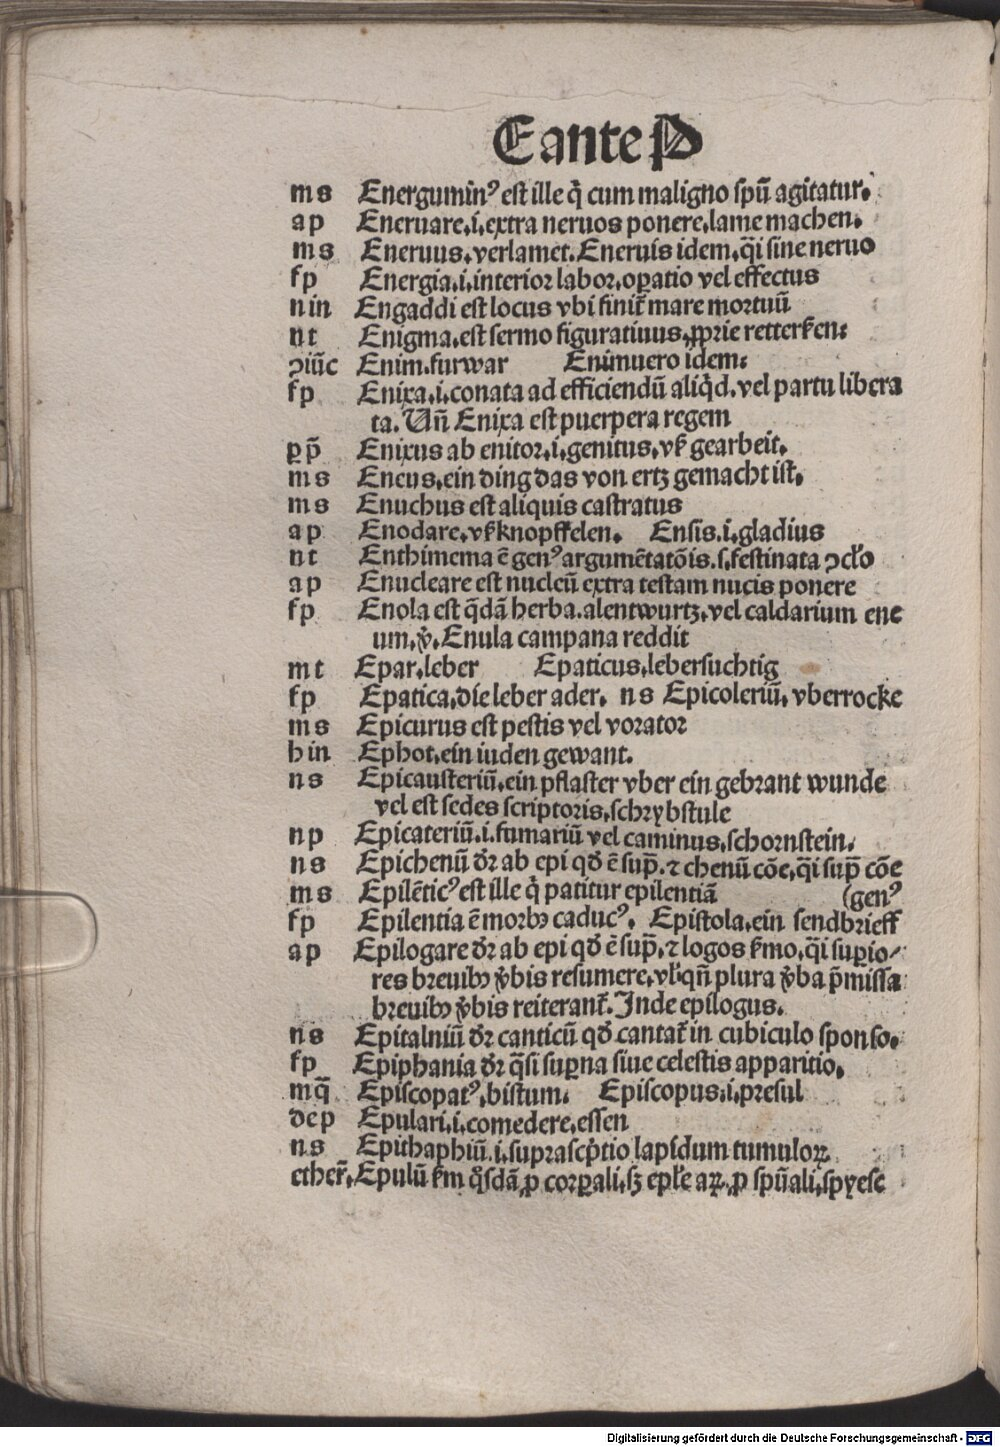 E ante P
m s Energuminꝰ est ille q̇ cum maligno spū agitatur.
a p Eneruare.i.extra neruos ponere, lame machen.
m s Eneruus, verlamet. Eneruis idem, q̄i sine neruo
f p Energia.i.interior labor, oꝑatio vel effectus
n in Engaddi est locus vbi finit᷑ mare mortuū
n t Enigma, est sermo figuratiuus, ꝓprie retterken.
ɔiūc Enim. furwar Enimuero idem.
f p Enixa.i.conata ad efficiendū aliq̇d. vel partu libera
ta. Vn̄ Enixa est puerpera regem
ꝑ p̄ Enixus ab enitor.i.genitus, vß gearbeit.
m s Eneus, ein ding das von ertz gemacht ist.
m s Enuchus est aliquis castratus
a p Enodare, vßknopffelen. Ensis.i.gladius
n t Enthimema ē genꝰ argumētatōis.s.festinata ɔcło
a p Enucleare est nucleū extra testam nucis ponere
f p Enola est q̄dā herba. alentwurtz, vel caldarium ene
um. v̇. Enula campana reddit
m t Epar, leber Epaticus, lebersuchtig
f p Epatica, die leber ader. n s Epicoleriū, vberrocke
m s Epicurus est pestis vel vorator
h in Ephot, ein iuden gewant.
n s Epicausteriū, ein pflaster vber ein gebrant wunde
vel est sedes scriptoris, schrybstule
n p Epicateriū.i.fumariū vel caminus, schornstein.
n s Epichenū dr̄ ab epi qd̄ ē sup̄. ⁊ chenū cōe, q̄i sup̄ cōe
m s Epilēticꝰ est ille q̇ patitur epilentiā (genꝰ
f p Epilentia ē morbꝫ caducꝰ. Epistola, ein sendbrieff
a p Epilogare dr̄ ab epi qd̄ ē sup̄, ⁊ logos ßmo, q̄i suꝑio⸗
res breuibꝫ v̇bis resumere, vł qn̄ plura v̇ba p̄missa
breuibꝫ v̇bis reiterant᷑. Inde epilogus.
n s Epitalniū dr̄ canticū qd̄ cantat᷑ in cubiculo sponso.
f p Epiphania dr̄ q̄si suꝑna siue celestis apparitio.
m q̄ Episcopatꝰ, bistum. Episcopus.i.presul
dep Epulari.i.comedere, essen
n s Epithaphiū.i.suprascṗtio lapidum tumuloꝝ
ether᷑. Epulū ßm q̇sdā, ꝓ corꝑali, sꝫ epłe aꝝ. ꝓ spūali, spyese
Digitalisierung gefördert durch die Deutsche Forschungsgemeinschaft - DFG